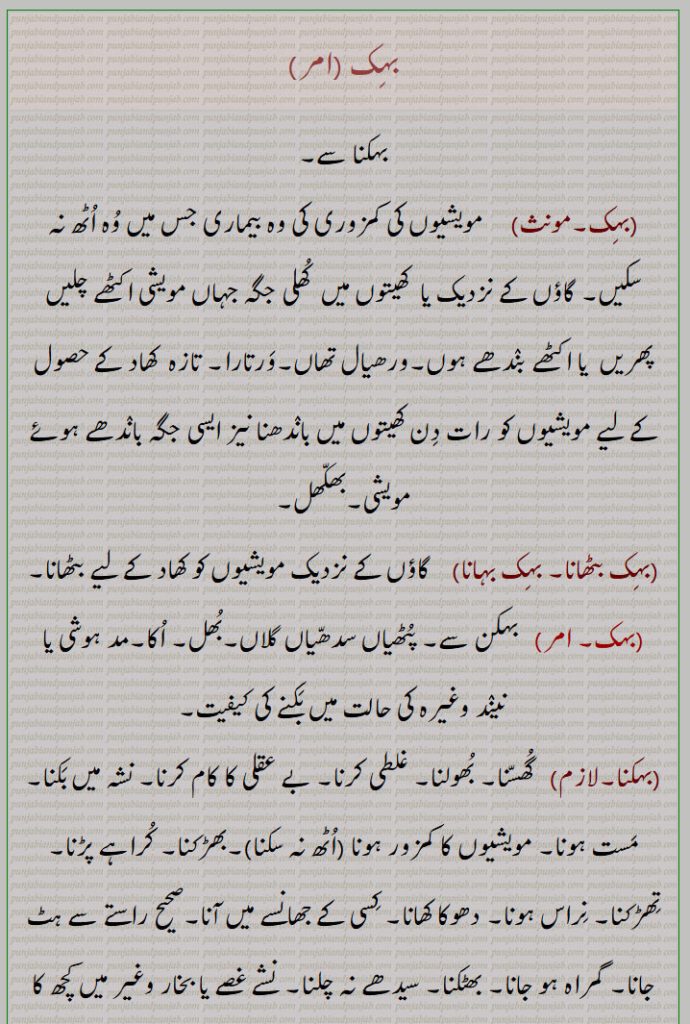 بہِک (امر)
بہکنا سے۔
(بہِک۔مونث) مویشیوں کی کمزوری کی وہ بیماری جس میں وُہ اُٹھ نہ
سکیں۔ گاؤں کے نزدیک یا کھیتوں میں کُھلی جگہ جہاں مویشی اکٹھے چلیں
پھریں یا اکٹھے بنْدھے ہوں۔ورھیال تھاں۔وَرتارا۔ تازہ کھاد کے حصول
کے لیے مویشیوں کو رات دِن کھیتوں میں بانْدھنا نیز ایسی جگہ بانْدھے ہوئے
مویشی۔بھکّھل۔
(بہِک بٹھانا۔ بہِک بہانا) گاؤں کے نزدیک مویشیوں کو کھاد کے لیے بٹھانا۔
(بہک۔ امر) بہکن سے۔ پُٹھیاں سدھیّاں گلاں۔بُھل۔ اُکا۔مد ہوشی یا
نینْد وغیرہ کی حالت میں بَکنے کی کیفیت۔
(بہکنا۔لازم) گُھسّنا۔ بُھولنا۔ غلطی کرنا۔ بے عقلی کا کام کرنا۔ نشہ میں بَکنا۔
مَست ہونا۔ مویشیوں کا کمزور ہونا (اُٹھ نہ سکنا)۔بھڑکنا۔ کُراہے پڑنا۔
تِھڑکنا۔ نِراس ہونا۔ دھوکا کھانا۔ کِسی کے جھانسے میں آنا۔ صحیح راستے سے ہٹ
جانا۔ گمراہ ہو جانا۔ بھٹکنا۔ سیدھے نہ چلنا۔ نشے غصے یا بخار وغیر میں کچھ کا